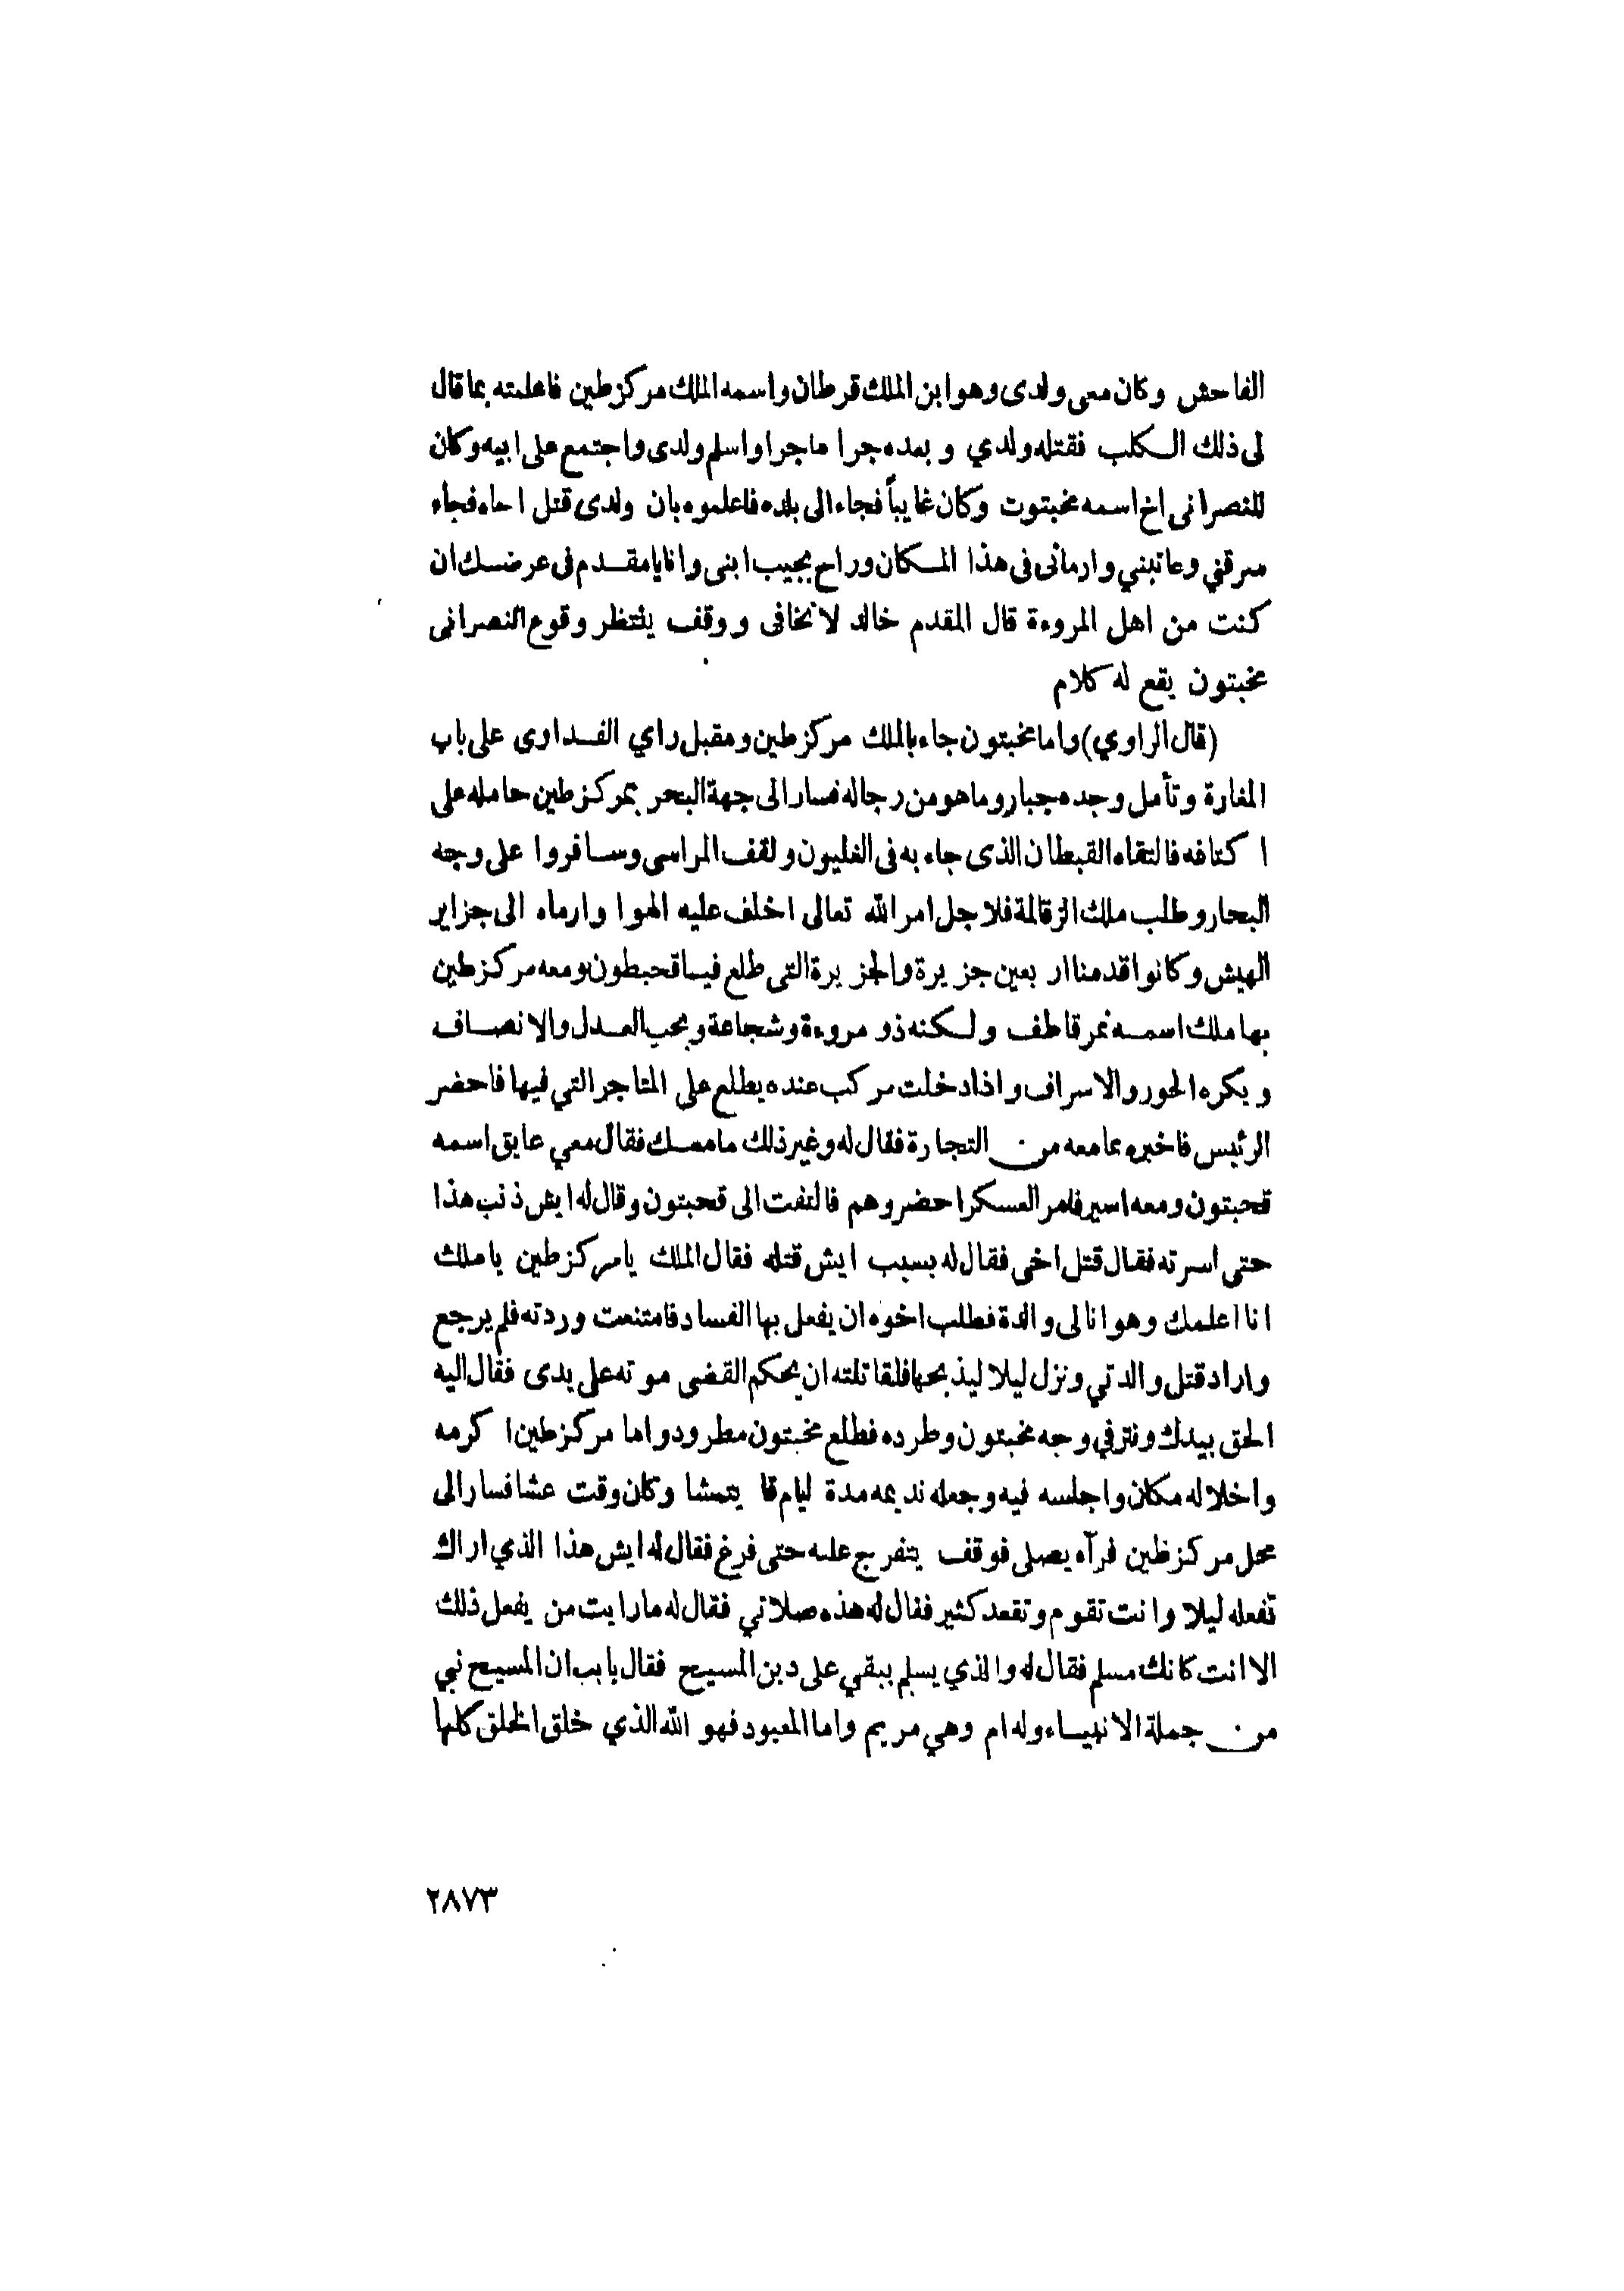 الفاحش وكان معى ولدى وهو ابن الملك قرطان واسمه الملك مركزطين فاعلمته بما قال
لى ذلك الكلب فقتله ولدي وبعده جرا ماجرا واسلم ولدى واجتمع على ابيه وكان
للنصرانى اخ اسمه مخبتوت وكان غايباً فجاء الى بلده فاعلموه بان ولدى قتل اخاه فجاء
سرقني وعاتبني وارمانى فى هذا المكان وراح يجيب ابنى وانا يا مقدم فى عرضك ان
كنت من اهل المروءة قال المقدم خالد لا تخافى ووقف ينتظر وقوع النصرانى
مخبتون يقع له كلام
(قال الراوي) واما مخبتون جاء بالملك مركزطين ومقبل راي الفداوى على باب
المغارة وتأمل وجده جبار وما هو من رجاله فسار الى جهة البحر بمركزطين حامله على
اكتافه فالتقاه القبطان الذى جاء به فى الغليون ولقف المراسى وسافروا على وجه
البحار وطلب ملك الزقالمة فلاجل امر الله تعالى اخلف عليه الهوا وارماه الى جزاير
الهيش وكانوا قدمنا اربعين جزيرة والجزيرة التى طلع فيها قحبطون ومعه مركزطين
بها ملك اسمه نمر قاطف ولكنه ذو مروءة وشجاعة ويحب العدل والانصاف
ويكره الجور والاسراف واذا دخلت مركب عنده يطلع على المتاجر التي فيها فاحضر
الرئيس فاخبره بما معه من التجارة فقال له وغير ذلك ما معك فقال معي عايق اسمه
قحبتون ومعه اسير فامر العسكر احضروهم فالتفت الى قحبتون وقال له ايش ذنب هذا
حتى اسرته فقال قتل اخى فقال له بسبب ايش قتله فقال الملك يا مركزطين يا ملك
انا اعلمك وهو انا لى والدة فطلب اخوه ان يفعل بها الفساد فامتنعت وردته فلم يرجع
واراد قتل والدتي ونزل ليلا ليذبحها فلقا تلته ان يحكم القضى موته على يدى فقال اليه
الحق بيدك ونتر في وجه مخبتون وطرده فطلع مخبتون مطرود واما مركزطين اكرمه
واخلا له مكان واجلسه فيه وجعله نديمه مدة ليام قا يتمشا وكان وقت عشا فسار الى
محل مركزطين فرآه يصلى فوقف يتفرج عليه حتى فرغ فقال له ايش هذا الذي اراك
تفعله ليلا وانت تقوم وتقعد كثير فقال له هذه صلاتي فقال له ما رايت من يفعل ذلك
الا انت كانك مسلم فقال له والذي يسلم يبقي على دين المسيح فقال يا بب ان المسيح نبي
من جملة الانبياء وله ام وهي مريم واما المعبود فهو الله الذي خلق الخلق كلها
٢٨٧٣